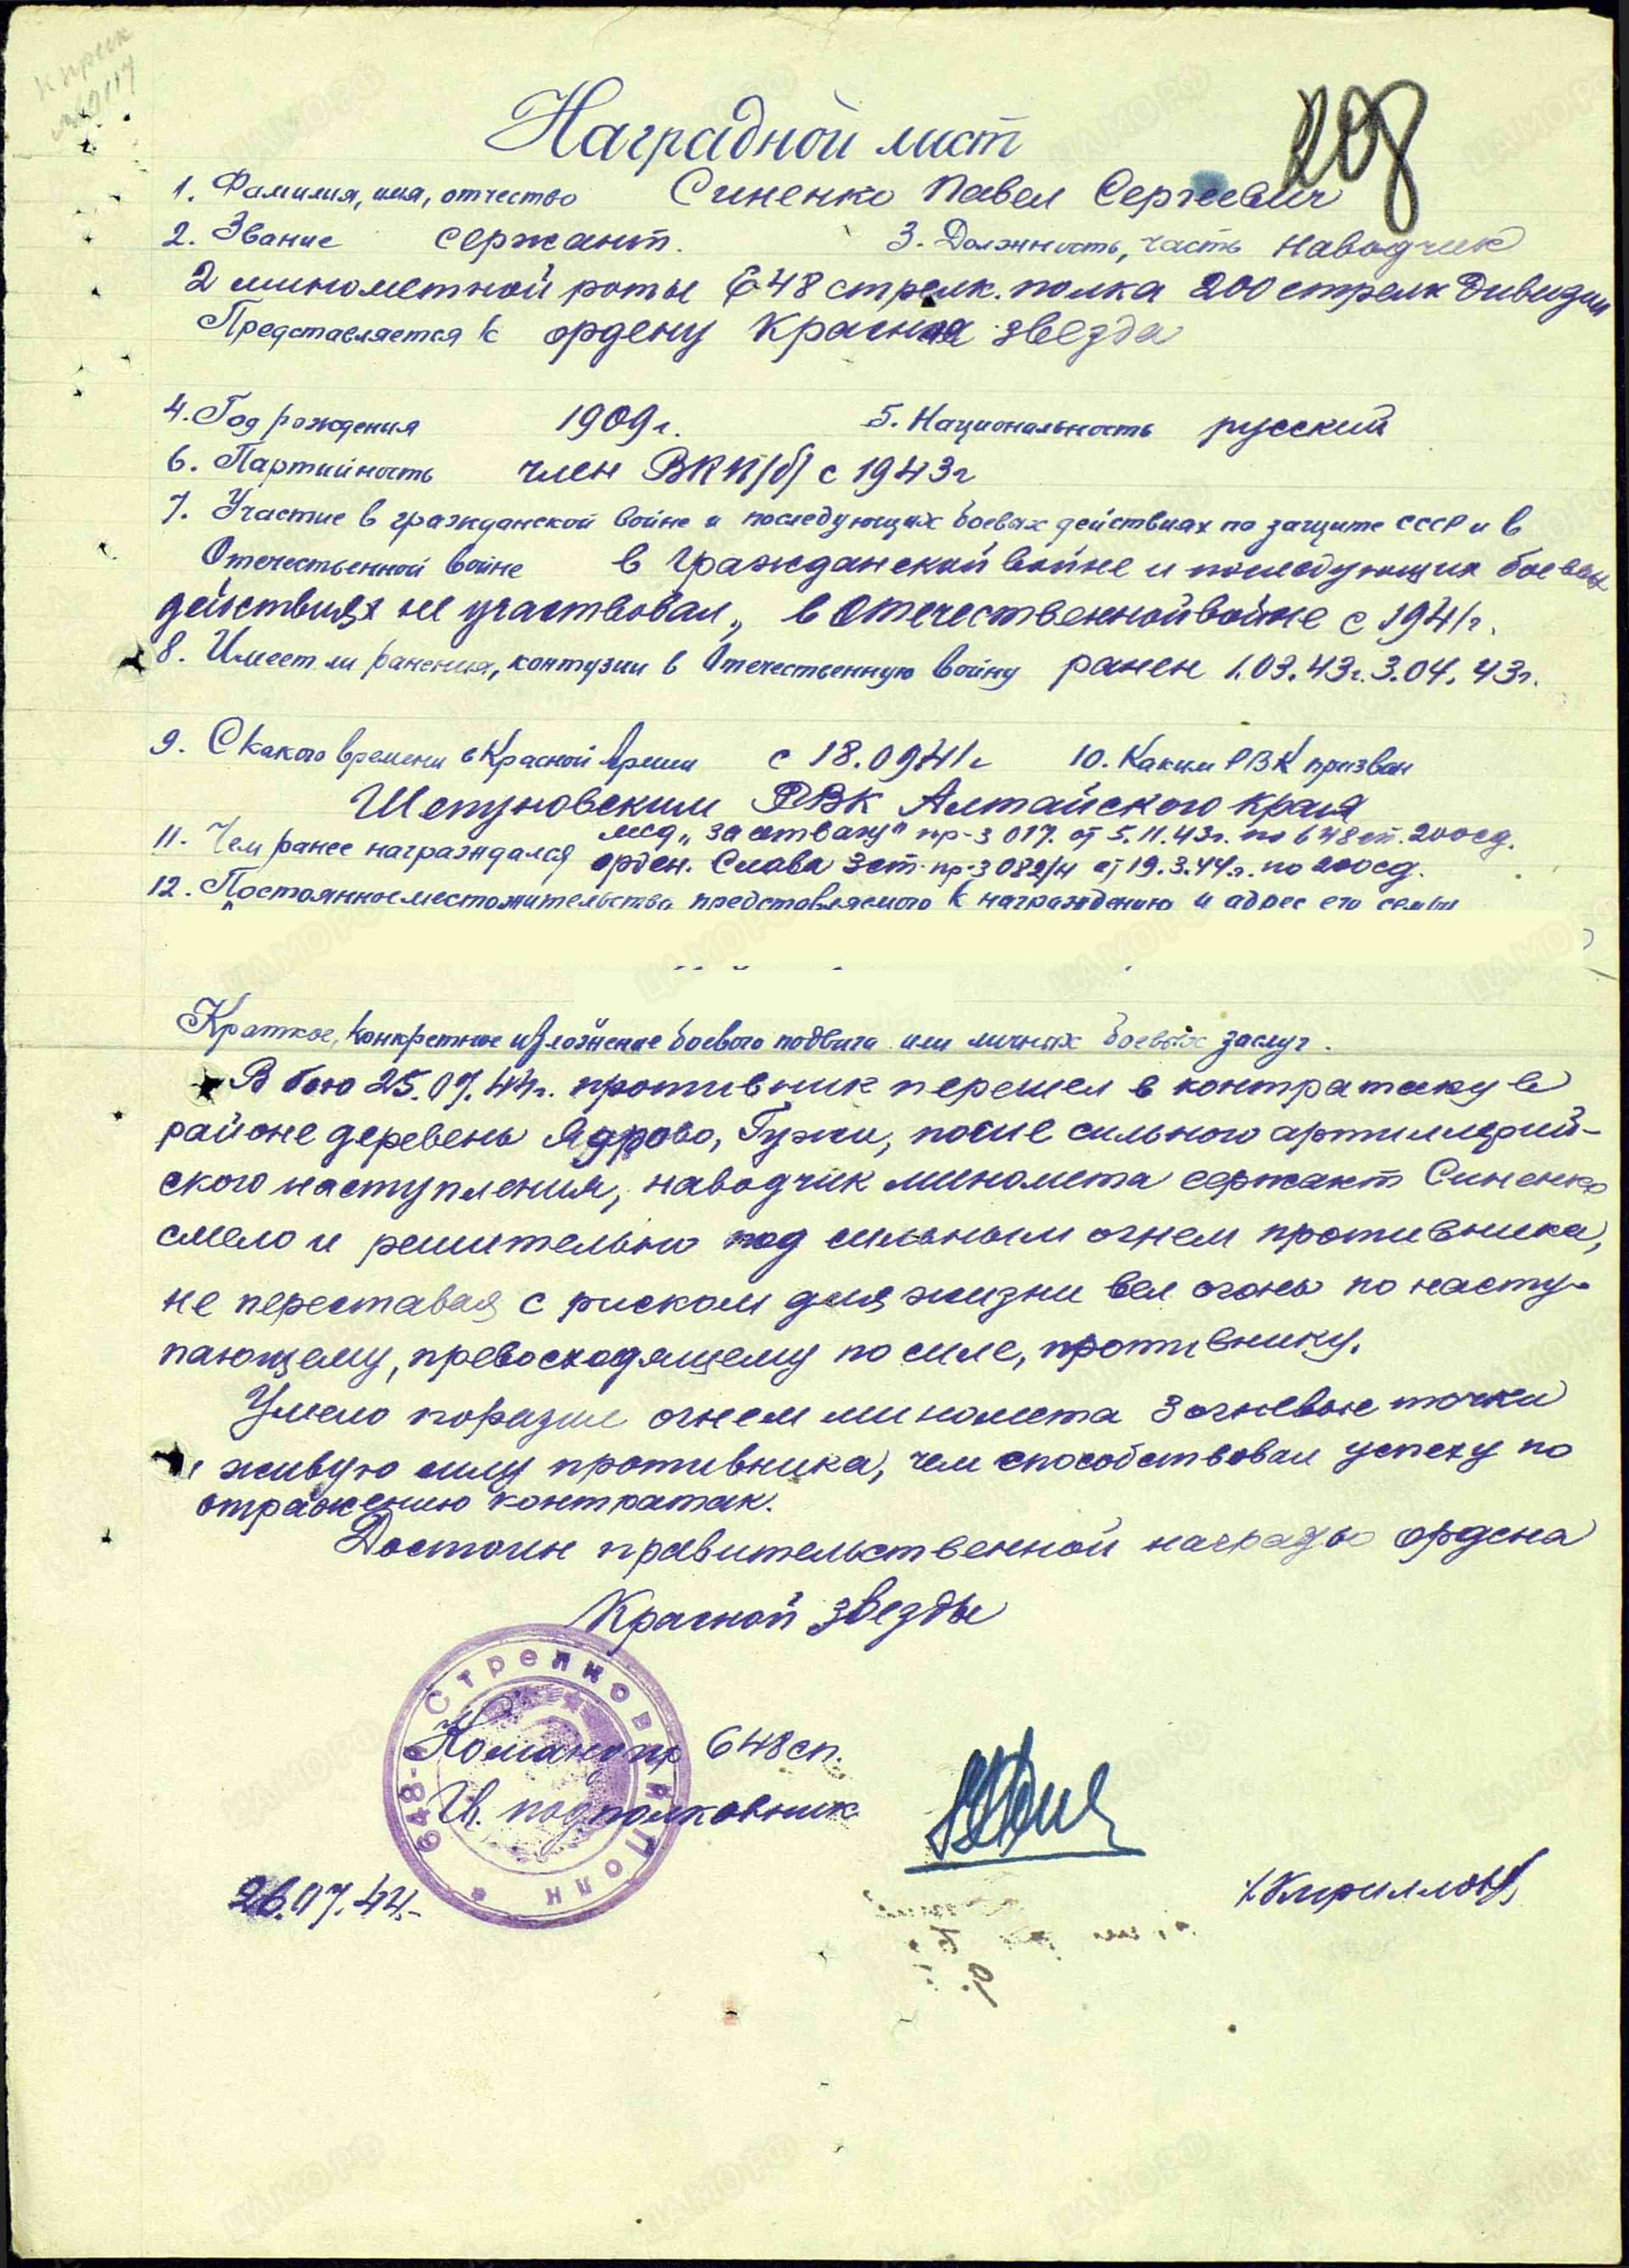 208
Наградной лист
1. Фамилия, имя, отчество Синенко Павел Сергеевич
2. Звание сержант. 3. Должность, часть наводчик
2 минометной роты 648 стрелк. полка 200 стрелк дивизии
Представляется к ордену Красная звезда
4. Год рождения 1909г. 5. Национальность русский
6. Партийность член ВКП/б/ с 1943г
7. Участие в гражданской войне и последующих боевых действиях по защите СССР и в
Отечественной войне в гражданской войне и последующих боевых
действиях не участвовал, в Отечественной войне с 1941г.
8. Имеет ли ранения, контузии в Отечественную войну ранен 1.03.43г. 3.04.43г.
9. С какого времени в Красной Армии с 18.0941г 10. Каким РВК призван
Шепуновским РВК Алтайского края
11. Чем ранее награждался мед „за отвагу" пр-з 017. от 5.11.43г. по 648 сп. 200сд.
орден. Слава 3 ст. пр-з 082/н от 19.3.44г. по 200сд.
12. Постоянное местожительства представляемого к награждению и адрес его семьи
Краткое, конкретное изложение боевого подвига или личных боевых заслуг.
В бою 25.07.44г. противник перешел в контратаку в
районе деревень Ядрово, Гужи, после сильного артиллерий-
ского наступления, наводчик миномета сержант Синенко
смело и решительно под сильным огнем противника,
не переставая с риском для жизни вел огонь по насту-
пающему, превосходящему по силе, противнику.
Умело поразил огнем миномета 3 огневые точки
и живую силу противника, чем способствовал успеху по
отражению контратак.
Достоин правительственной награды ордена
Красной звезды
648-й Стрелковый Полк
Командир 648 сп.
Гв. подполковник
/Кириллов/
26.07.44.-